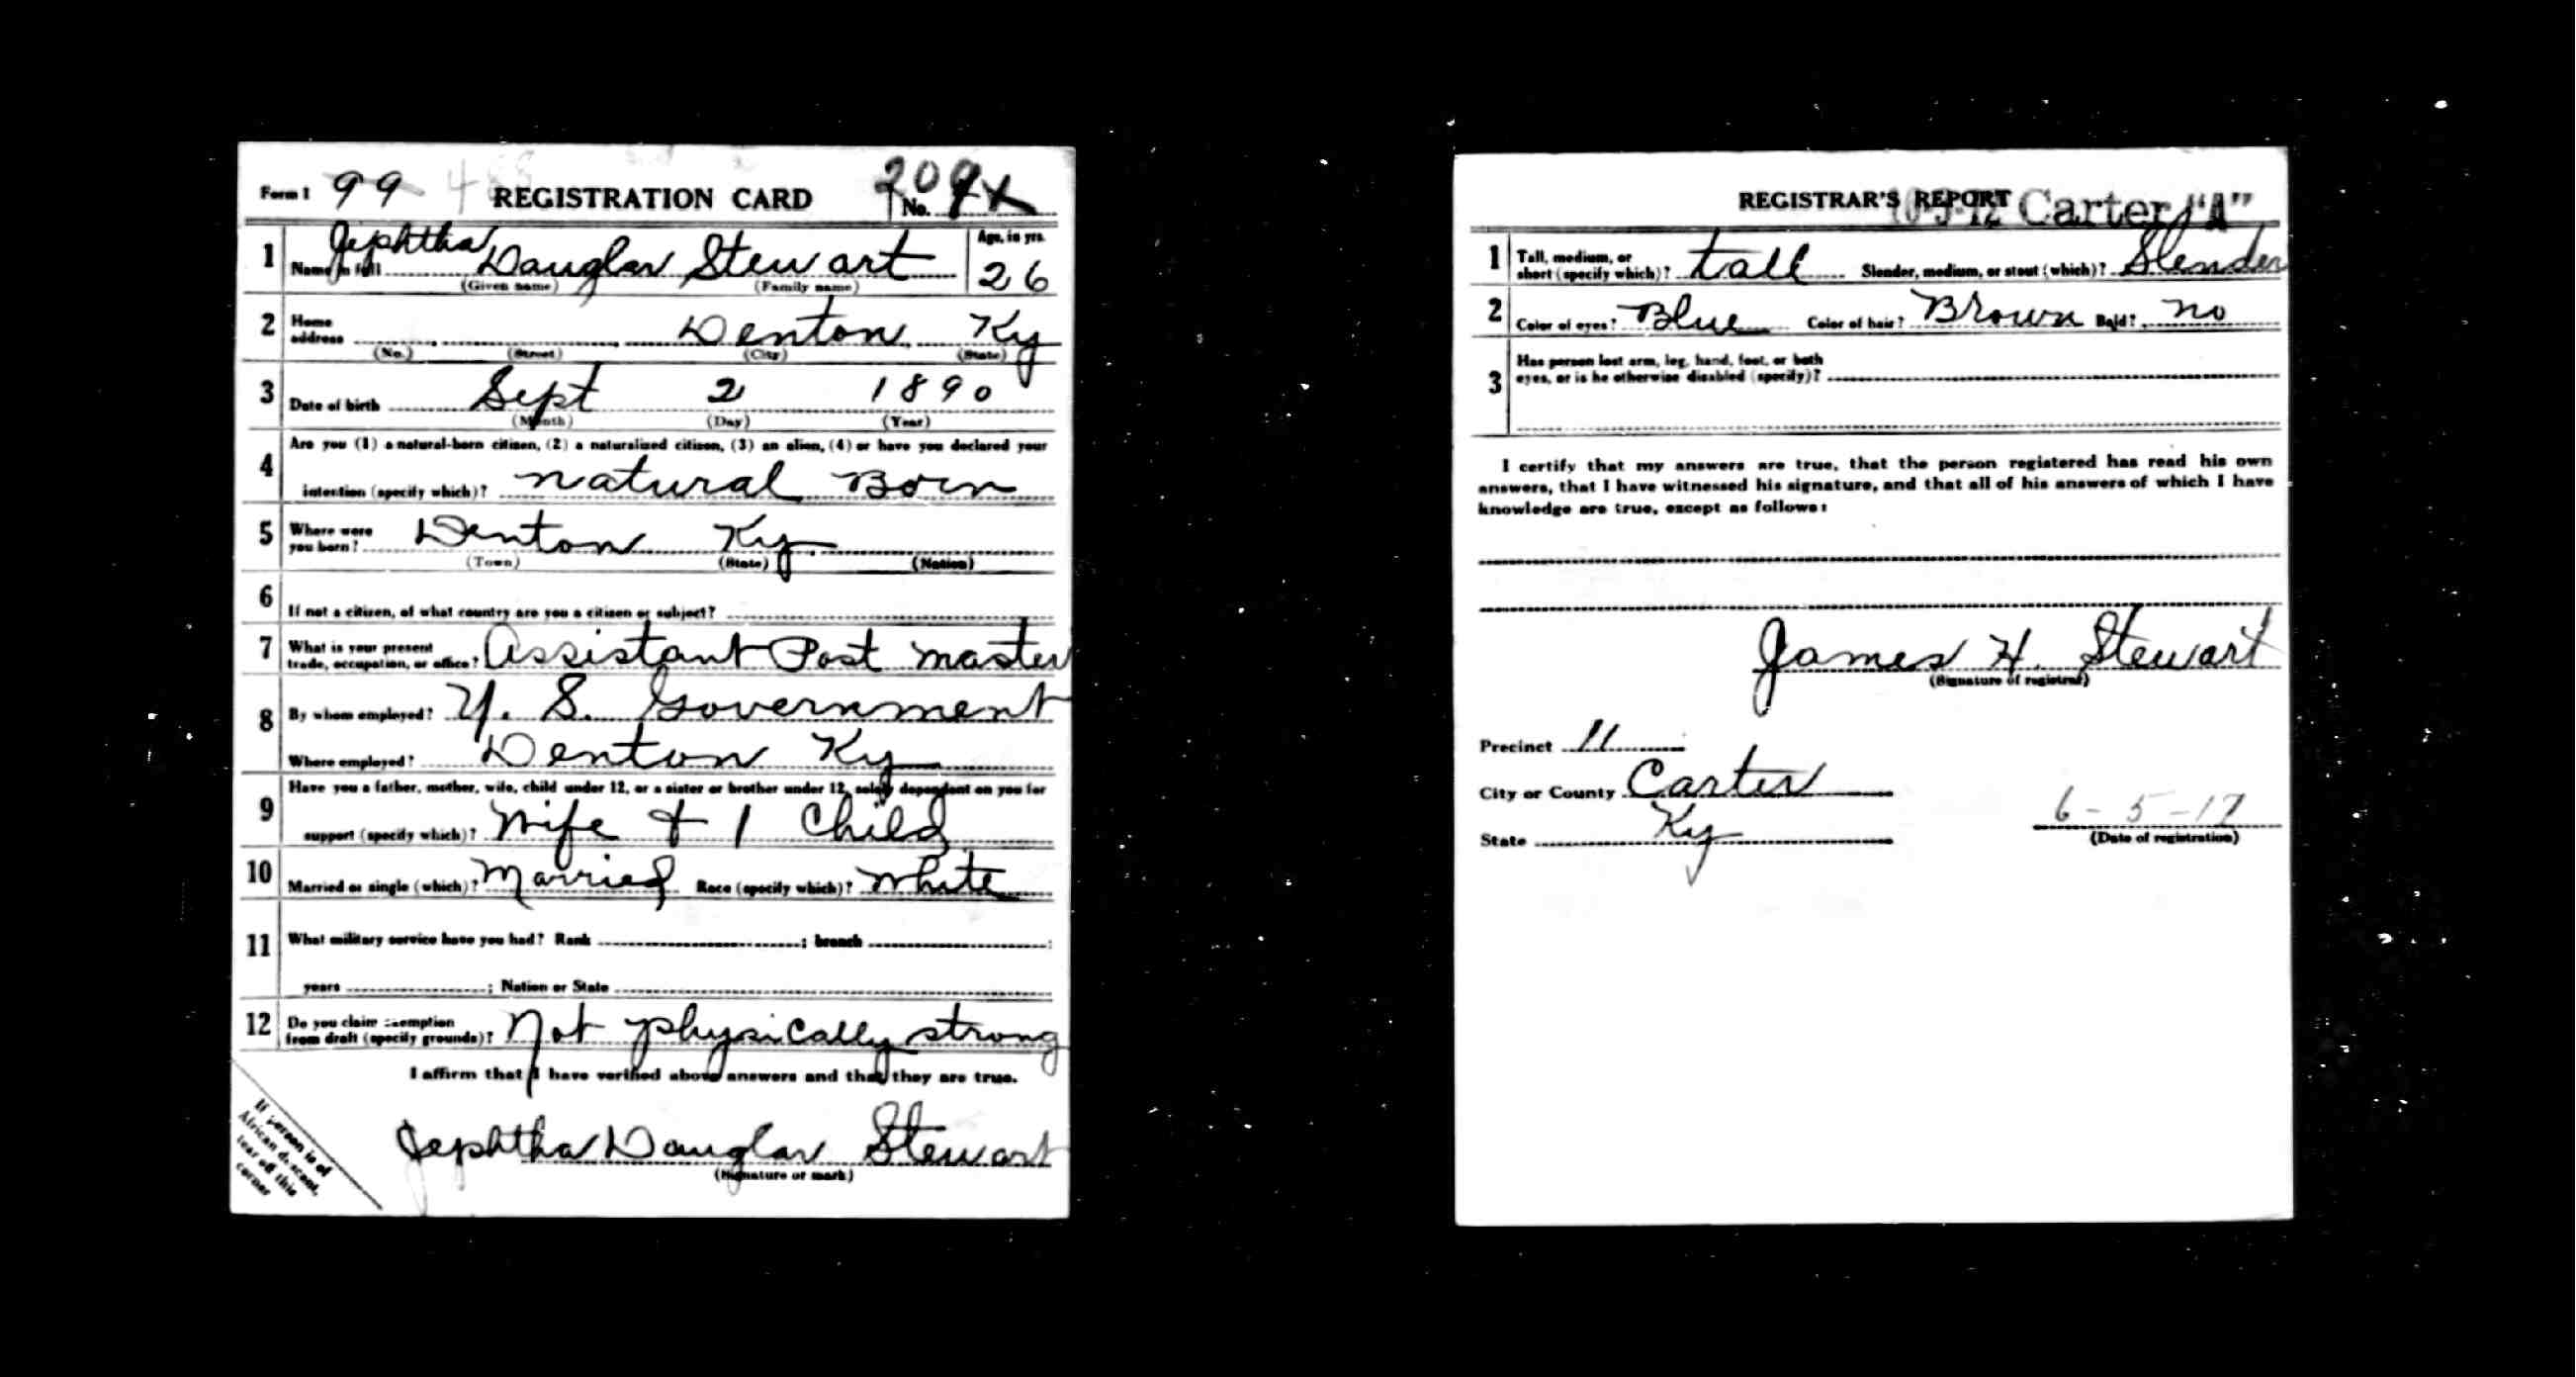 Form 1 99 REGISTRATION CARD 209
No.
1 Name in full Jephtha Douglas Stewart Age, in yrs. 26
(Given name) (Family name)
2 Home address Denton Ky
(No.) (Street) (City) (State)
3 Date of birth Sept 2 1890
(Month) (Day) (Year)
4 Are you (1) a natural-born citizen, (2) a naturalized citizen, (3) an alien, (4) or have you declared your
intention (specify which)? natural Born
5 Where were you born? Denton Ky.
(Town) (State) (Nation)
6 If not a citizen, of what country are you a citizen or subject?
7 What is your present trade, occupation, or office? Assistant Post master
8 By whom employed? U. S. Government
Where employed? Denton Ky
9 Have you a father, mother, wife, child under 12, or a sister or brother under 12, solely dependent on you for
support (specify which)? Wife + 1 Child
10 Married or single (which)? Married Race (specify which)? White
11 What military service have you had? Rank ; branch ;
years ; Nation or State
12 Do you claim exemption from draft (specify grounds)? Not physically strong
I affirm that I have verified above answers and that they are true.
Jephtha Douglas Stewart
(Signature or mark)
If person is of
African descent,
tear off this
corner
REGISTRAR'S REPORT Carter "A"
1 Tall, medium, or short (specify which)? tall Slender, medium, or stout (which)? Slender
2 Color of eyes? Blue Color of hair? Brown Bald? no
3 Has person lost arm, leg, hand, foot, or both
eyes, or is he otherwise disabled (specify)?
I certify that my answers are true, that the person registered has read his own
answers, that I have witnessed his signature, and that all of his answers of which I have
knowledge are true, except as follows:
James H. Stewart
(Signature of registrar)
Precinct 11
City or County Carter
State Ky
6-5-17
(Date of registration)